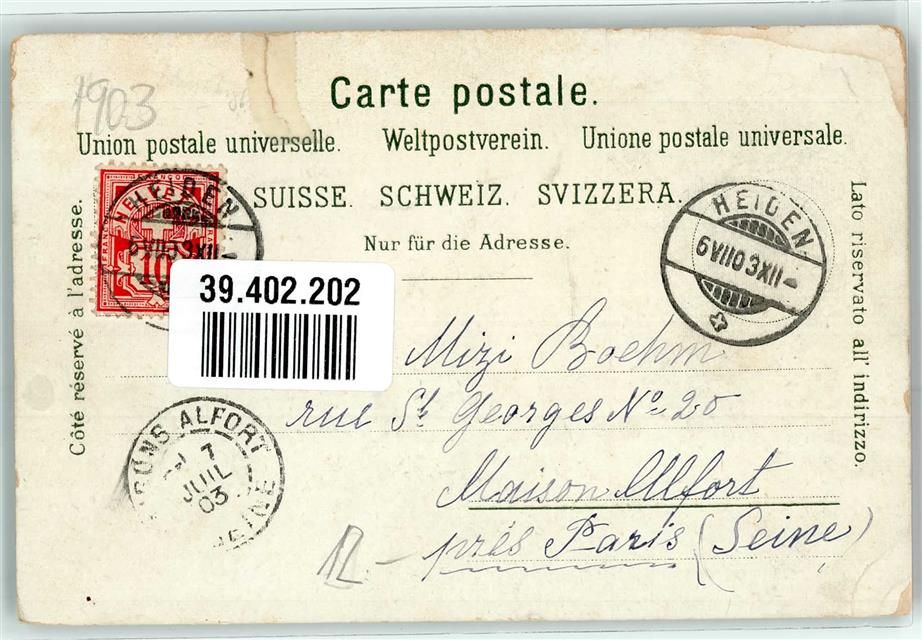 1903
Carte postale.
Union postale universelle. Weltpostverein. Unione postale universale.
SUISSE. SCHWEIZ. SVIZZERA.
Nur für die Adresse.
Côté réservé à l'adresse.
Lato riservato all' indirizzo.
FRANCO
HELVETIA
10
HEIDEN
6 VII 03 XII
39.402.202
HEIDEN
6 VII 03 XII
Mizi Boehm
rue St Georges No 20
Maison Alfort
près Paris (Seine)
ALFORT
7
JUIL
03
SEINE
12